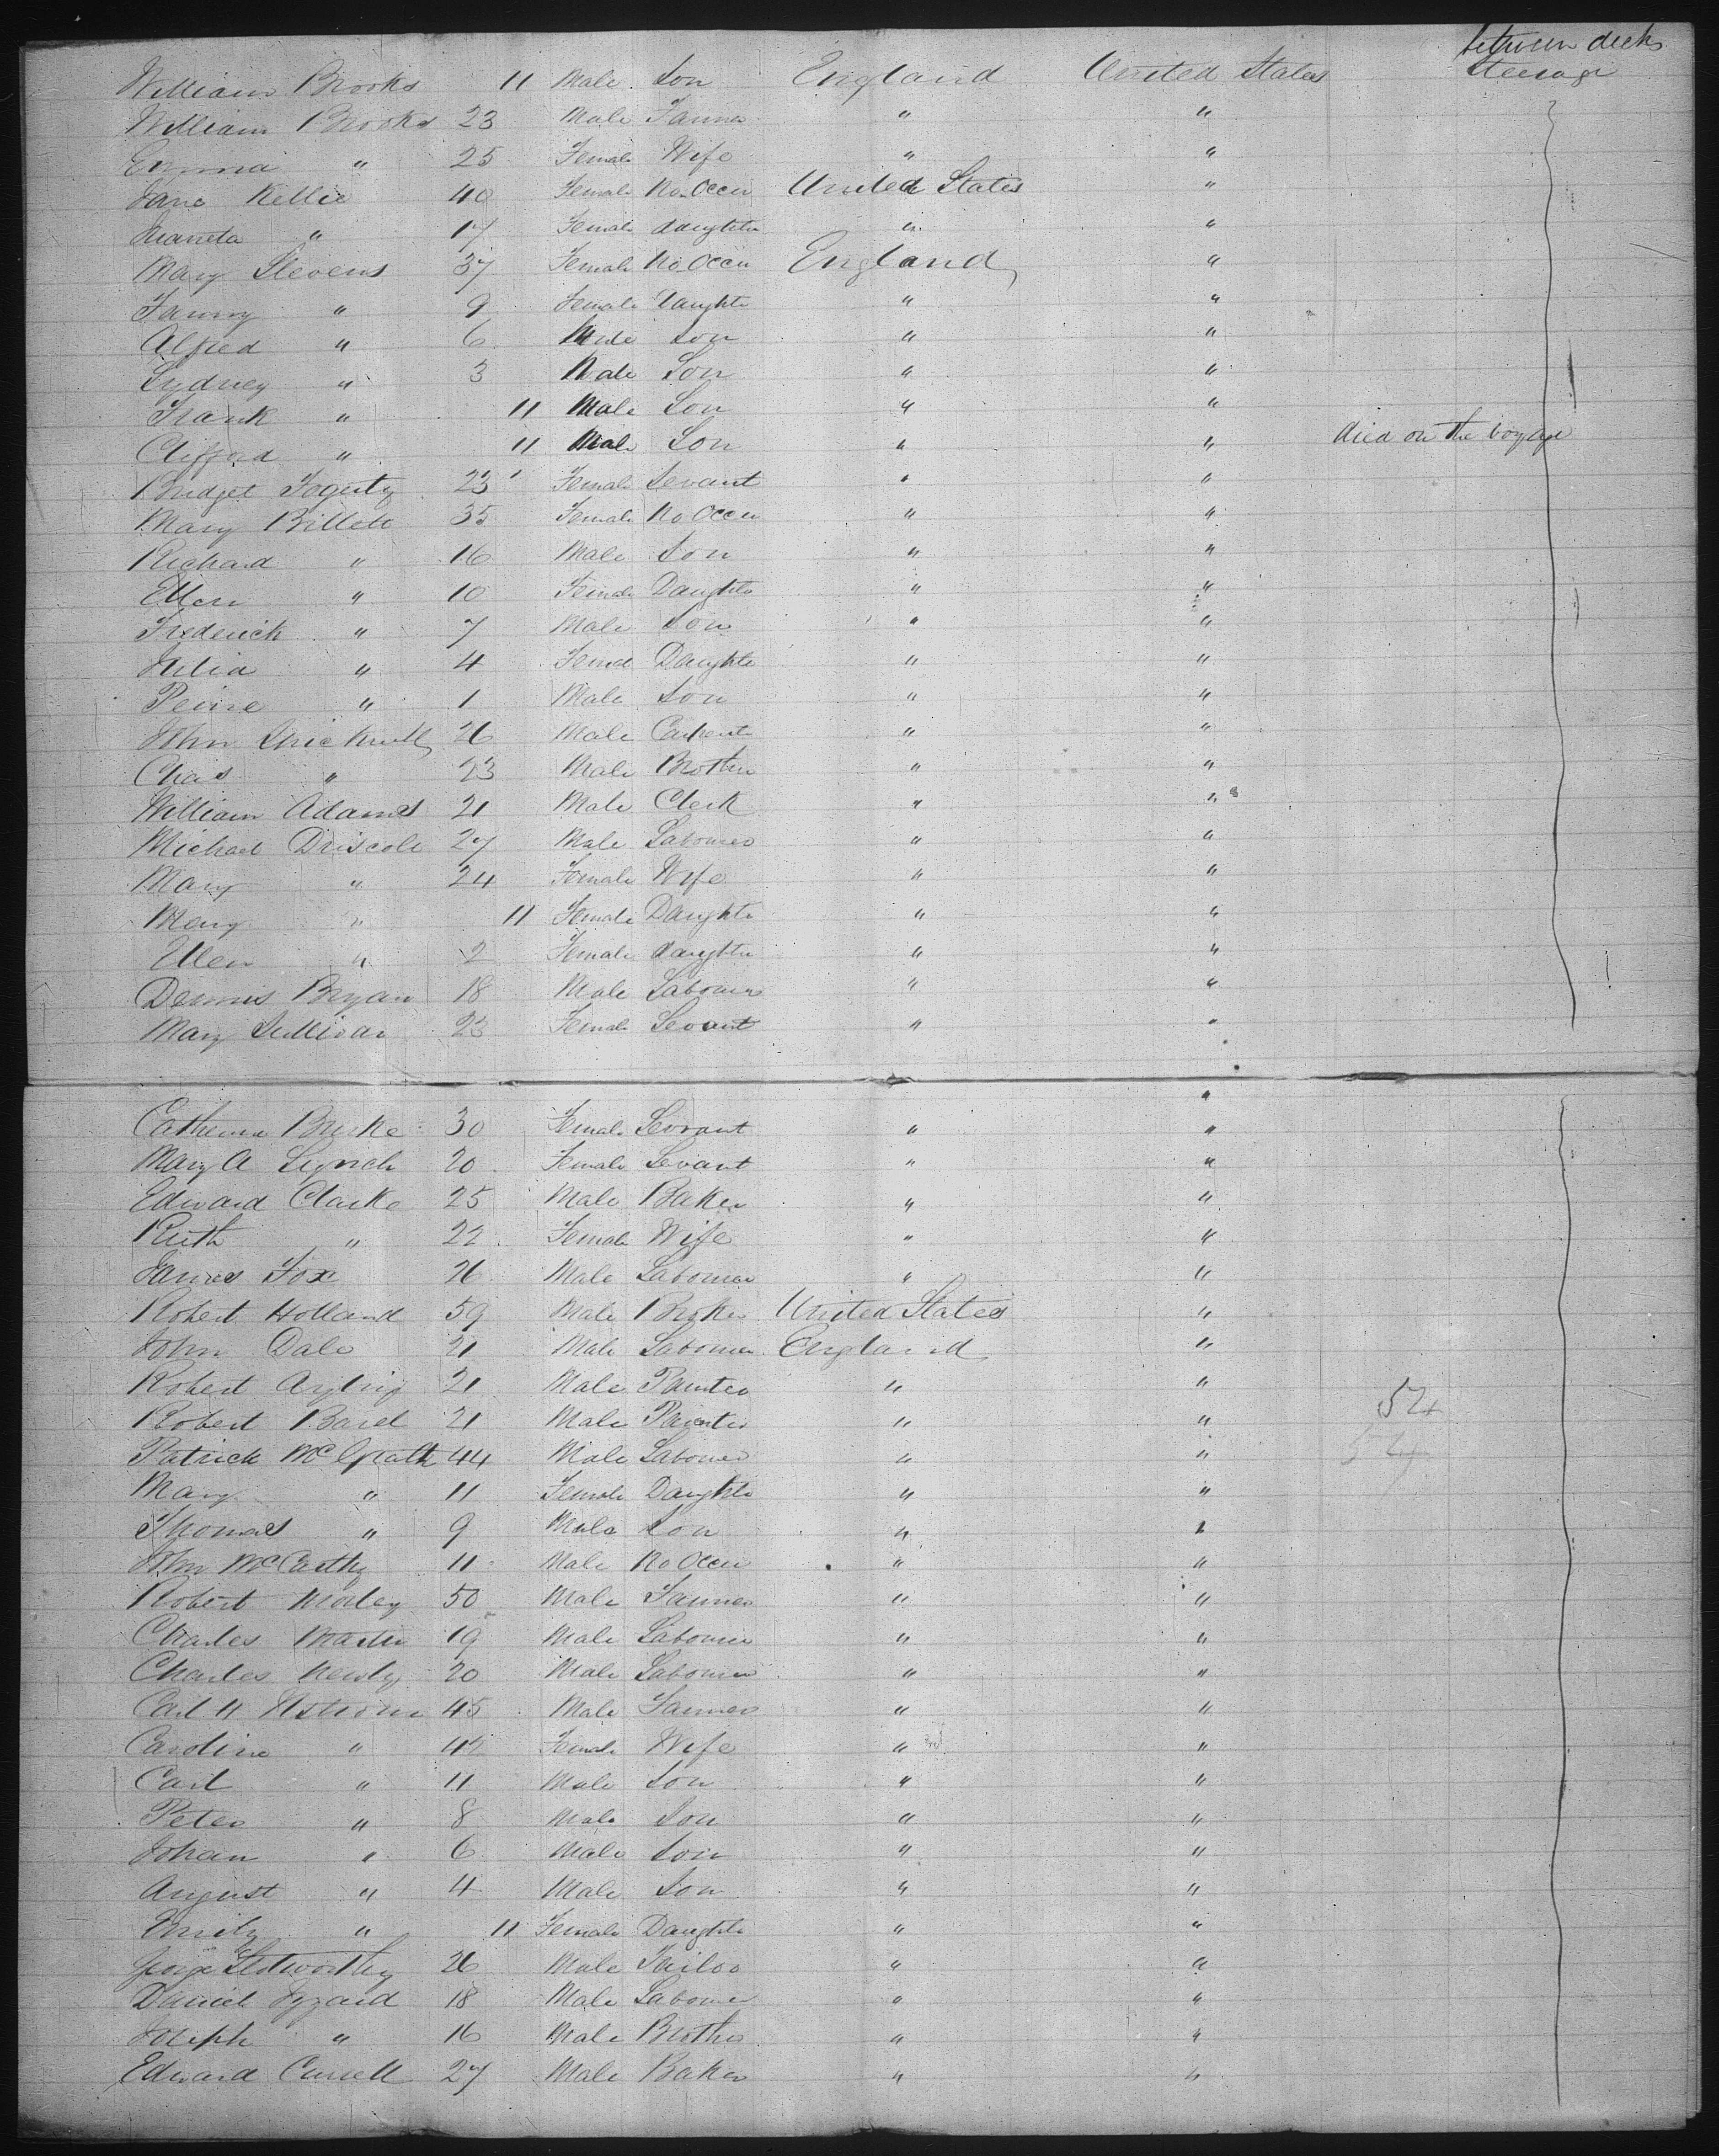 between decks
William Brooks 11 Male Son England United States Steerage
William Brooks 23 Male Farmer " "
Emma " 25 Female Wife " "
Jane Kellie 40 Female No Occu United States "
Juaneta " 17 Female daughter " "
Mary Stevens 37 Female No Occu England "
Fanny " 9 Female Daughte " "
Alfred " 6 Male Son " "
Sydney " 3 Male Son " "
Frank " 11 Male Son " "
Clifford " 11 Male Son " " died on the voyage
Bridget Fogerty 23 Female Servant " "
Mary Billett 35 Female No Occu " "
Richard " 16 Male Son " "
Ellen " 10 Female Daughte " "
Frederick " 7 Male Son " "
Julia " 4 Femal Daughte " "
Peirre " 1 Male Son " "
John 26 Male Carpente " "
Chas " 23 Male Brother " "
William Adams 21 Male Clerk " "
Michael Driscole 27 Male Labourer " "
Mary " 24 Female Wife " "
Mary " 11 Female Daughte " "
Ellen " 2 Female daughter " "
Dennis Bryan 18 Male Labourer " "
Mary Sullivan 23 Female Servant " "
"
Catherine Burke 30 Female Servant " "
Mary A Lynch 20 Female Servant " "
Edward Clarke 25 Male Baker " "
Ruth " 22 Female Wife " "
James Fox 26 Male Labourer " "
Robert Holland 59 Male Broker United States "
John Dale 21 Male Labourer England "
Robert 21 Male Painter " "
Robert 21 Male Painter " " 52
Patrick McGrath 44 Male Labourer " "
Mary " 11 Female Daughte " "
Thomas " 9 Male Son " "
John McCarthy 11 Male No Occu " "
Robert Morley 50 Male Farmer " "
Charles Martin 19 Male Labourer " "
Charles Newly 20 Male Labourer " "
Carl H 45 Male Farmer " "
Caroline " 42 Female Wife " "
Carl " 11 Male Son " "
Peter " 8 Male Son " "
Johan " 6 Male Son " "
August " 4 Male Son " "
Emily " 11 Female Daughte " "
George Sletworthy 26 Male Tailor " "
Daniel Izzard 18 Male Labourer " "
Joseph " 16 Male Brother " "
Edward Cursell 27 Male Baker " "